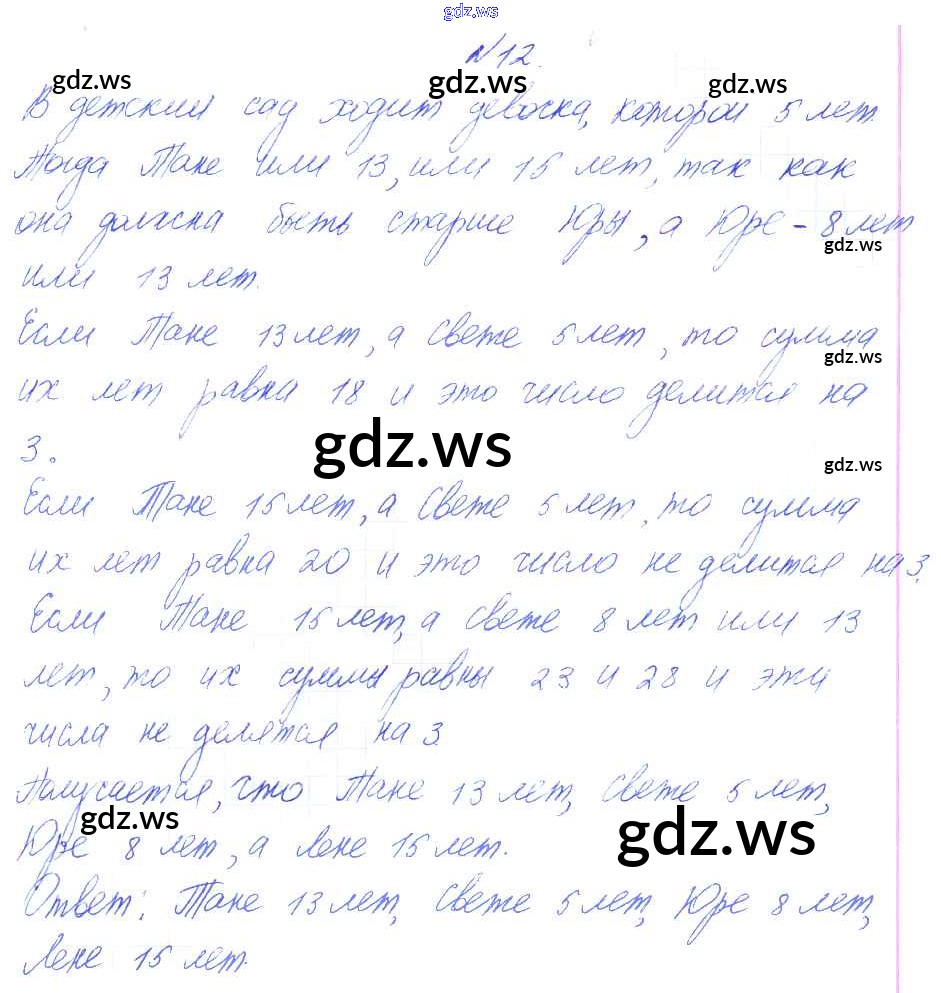 gdz.ws
№12.
gdz.ws gdz.ws gdz.ws
В детский сад ходит девочка, которой 5 лет.
Тогда Тане или 13, или 15 лет, так как
она должна быть старше Юры, а Юре - 8 лет
gdz.ws
или 13 лет.
Если Тане 13 лет, а Свете 5 лет, то сумма
gdz.ws
их лет равна 18 и это число делится на
3.
gdz.ws
gdz.ws
Если Тане 15 лет, а Свете 5 лет, то сумма
их лет равна 20 и это число не делится на 3.
Если Тане 15 лет, а Свете 8 лет или 13
лет, то их суммы равны 23 и 28 и эти
числа не делятся на 3.
Получается, что Тане 13 лет, Свете 5 лет,
gdz.ws
gdz.ws
Юре 8 лет, а Лене 15 лет.
Ответ: Тане 13 лет, Свете 5 лет, Юре 8 лет,
Лене 15 лет.